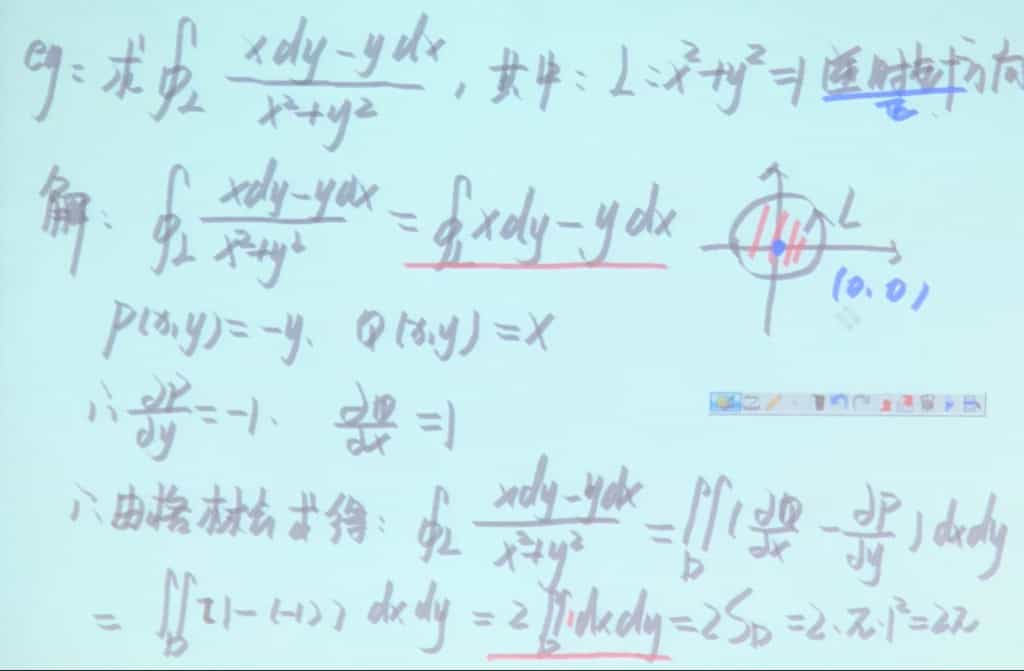 eg: 求∮_L (xdy-ydx)/(x²+y²), 其中: L: x²+y²=1 逆时针方向
正
解: ∮_L (xdy-ydx)/(x²+y²) = ∮_L xdy-ydx
L
(0.0)
P(x,y)=-y、 Q(x,y)=x
∴ ∂P/∂y=-1、 ∂Q/∂x=1
∴由格林公式得: ∮_L (xdy-ydx)/(x²+y²) = ∬_D (∂Q/∂x - ∂P/∂y) dxdy
= ∬_D [1-(-1)] dxdy = 2∬_D 1dxdy = 2S_D = 2·π·1² = 2π